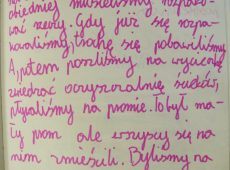 obiedniej musieliśmy rozpako-
wać rzeczy. Gdy już się rozpa-
kowaliśmy, trochę się pobawiliśmy.
A potem poszliśmy na wycieczkę
zwiedzać
pływaliśmy na promie. To był ma-
ły prom ale wszyscy się na
niem zmieścili. Byliśmy na